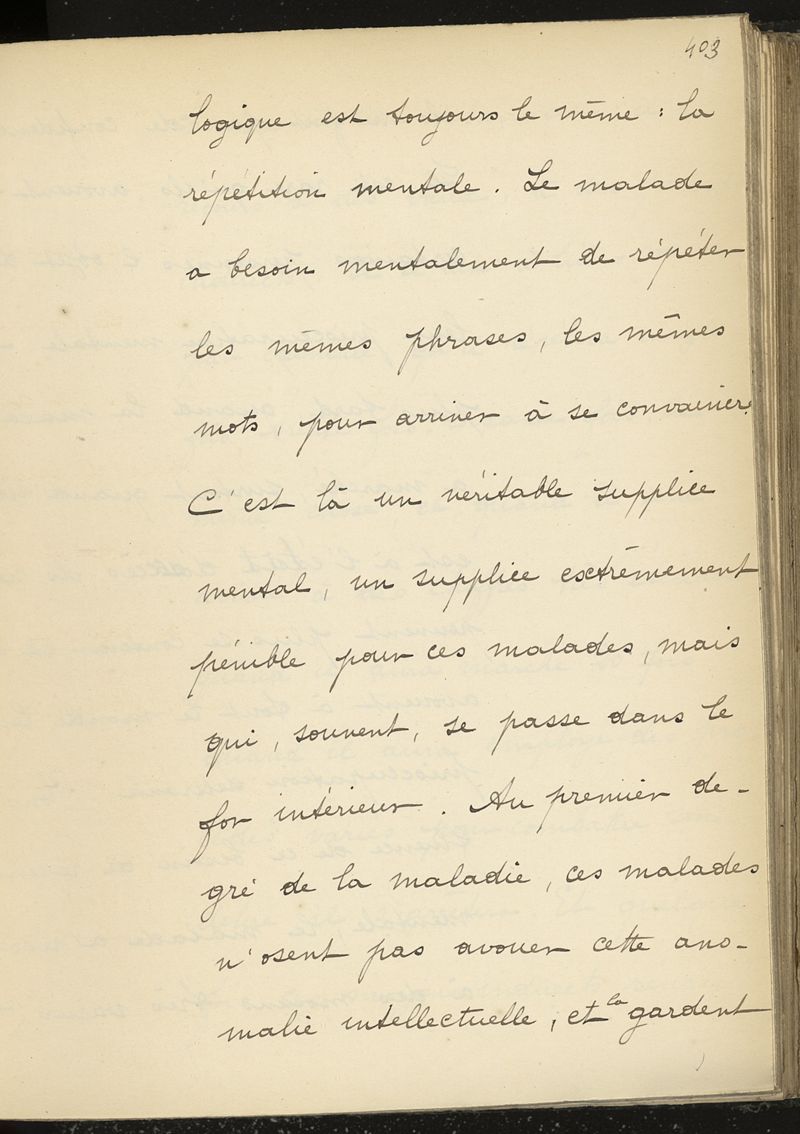 403
logique est toujours le même : la
répétition mentale. Le malade
a besoin mentalement de répéter
les mêmes phrases, les mêmes
mots, pour arriver à se convaincre.
C'est là un véritable supplice
mental, un supplice extrêmement
pénible pour ces malades, mais
qui, souvent, se passe dans le
for intérieur. Au premier de-
gré de la maladie, ces malades
n'osent pas avouer cette ano-
malie intellectuelle, et la gardent